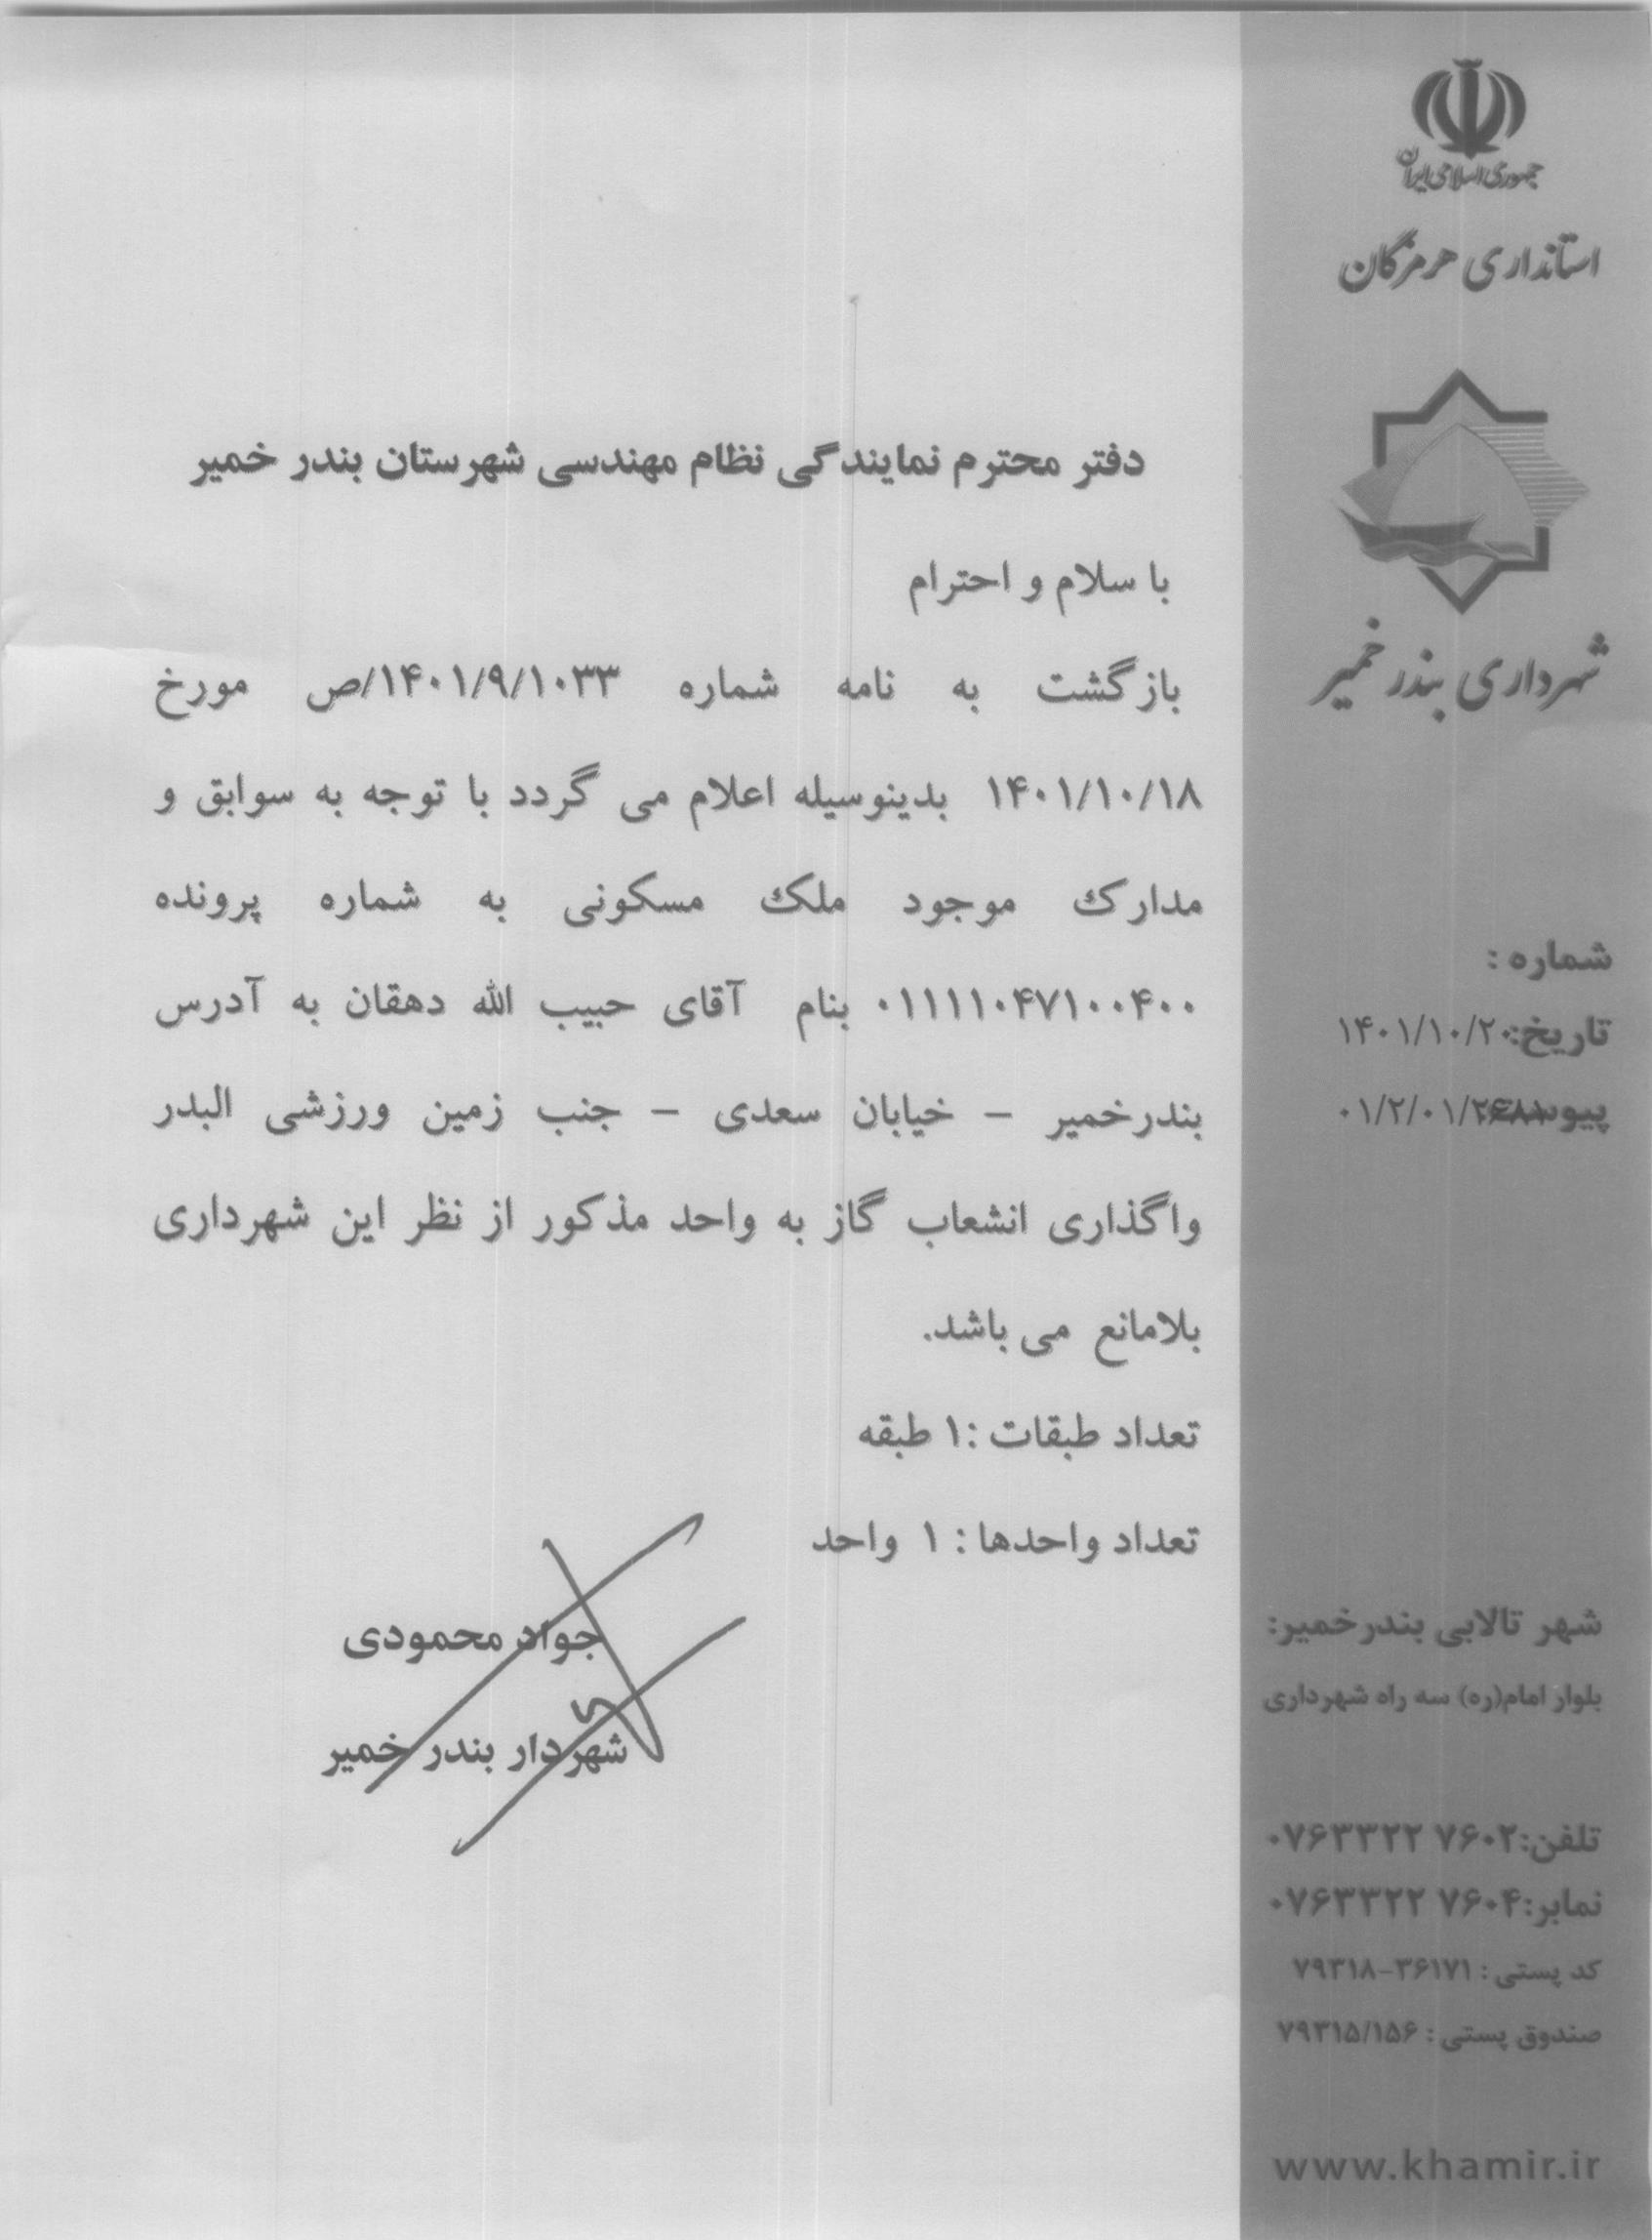 جمهوری اسلامی ایران
استانداری هرمزگان
شهرداری بندر خمیر
شماره :
تاریخ: ۱۴۰۱/۱۰/۲۰
پیوست: ۰۱/۲/۰۱/۲۶۸۱
دفتر محترم نمایندگی نظام مهندسی شهرستان بندر خمیر
با سلام و احترام
بازگشت به نامه شماره ۱۴۰۱/۹/۱۰۳۳/ص مورخ
۱۴۰۱/۱۰/۱۸ بدینوسیله اعلام می گردد با توجه به سوابق و
مدارک موجود ملک مسکونی به شماره پرونده
۰۱۱۱۱۰۴۷۱۰۰۴۰۰ بنام آقای حبیب الله دهقان به آدرس
بندرخمیر – خیابان سعدی – جنب زمین ورزشی البدر
واگذاری انشعاب گاز به واحد مذکور از نظر این شهرداری
بلامانع می باشد.
تعداد طبقات :۱ طبقه
تعداد واحدها : ۱ واحد
جواد محمودی
شهردار بندر خمیر
شهر تالابی بندرخمیر:
بلوار امام(ره) سه راه شهرداری
تلفن:۷۶۰۲ ۰۷۶۳۳۲۲
نمابر:۷۶۰۴ ۰۷۶۳۳۲۲
کد پستی : ۳۶۱۷۱-۷۹۳۱۸
صندوق پستی : ۷۹۳۱۵/۱۵۶
www.khamir.ir